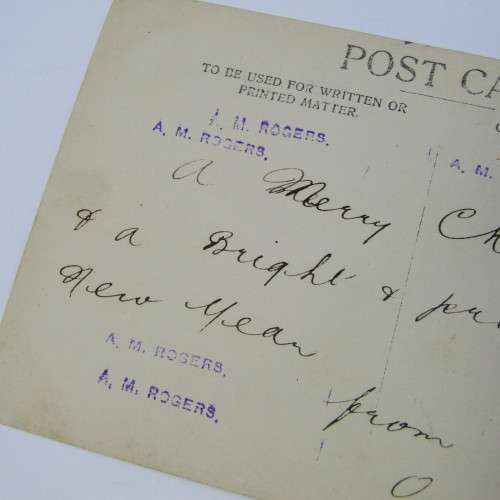 POST CA
TO BE USED FOR WRITTEN OR
PRINTED MATTER.
A. M. ROGERS.
A. M. ROGERS.
A. M.
a Merry Ch
& a Bright &
New Year
A. M. ROGERS.
A. M. ROGERS.
from